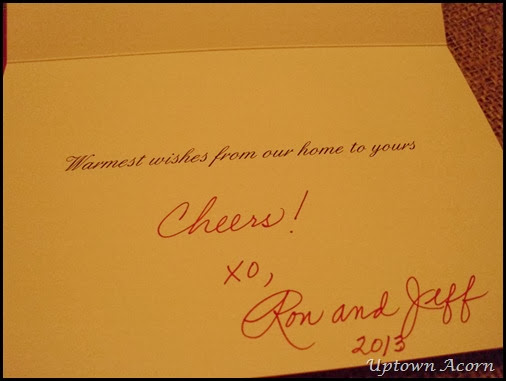 Warmest wishes from our home to yours
Cheers!
xo,
Ron and Jeff
2013
Uptown Acorn